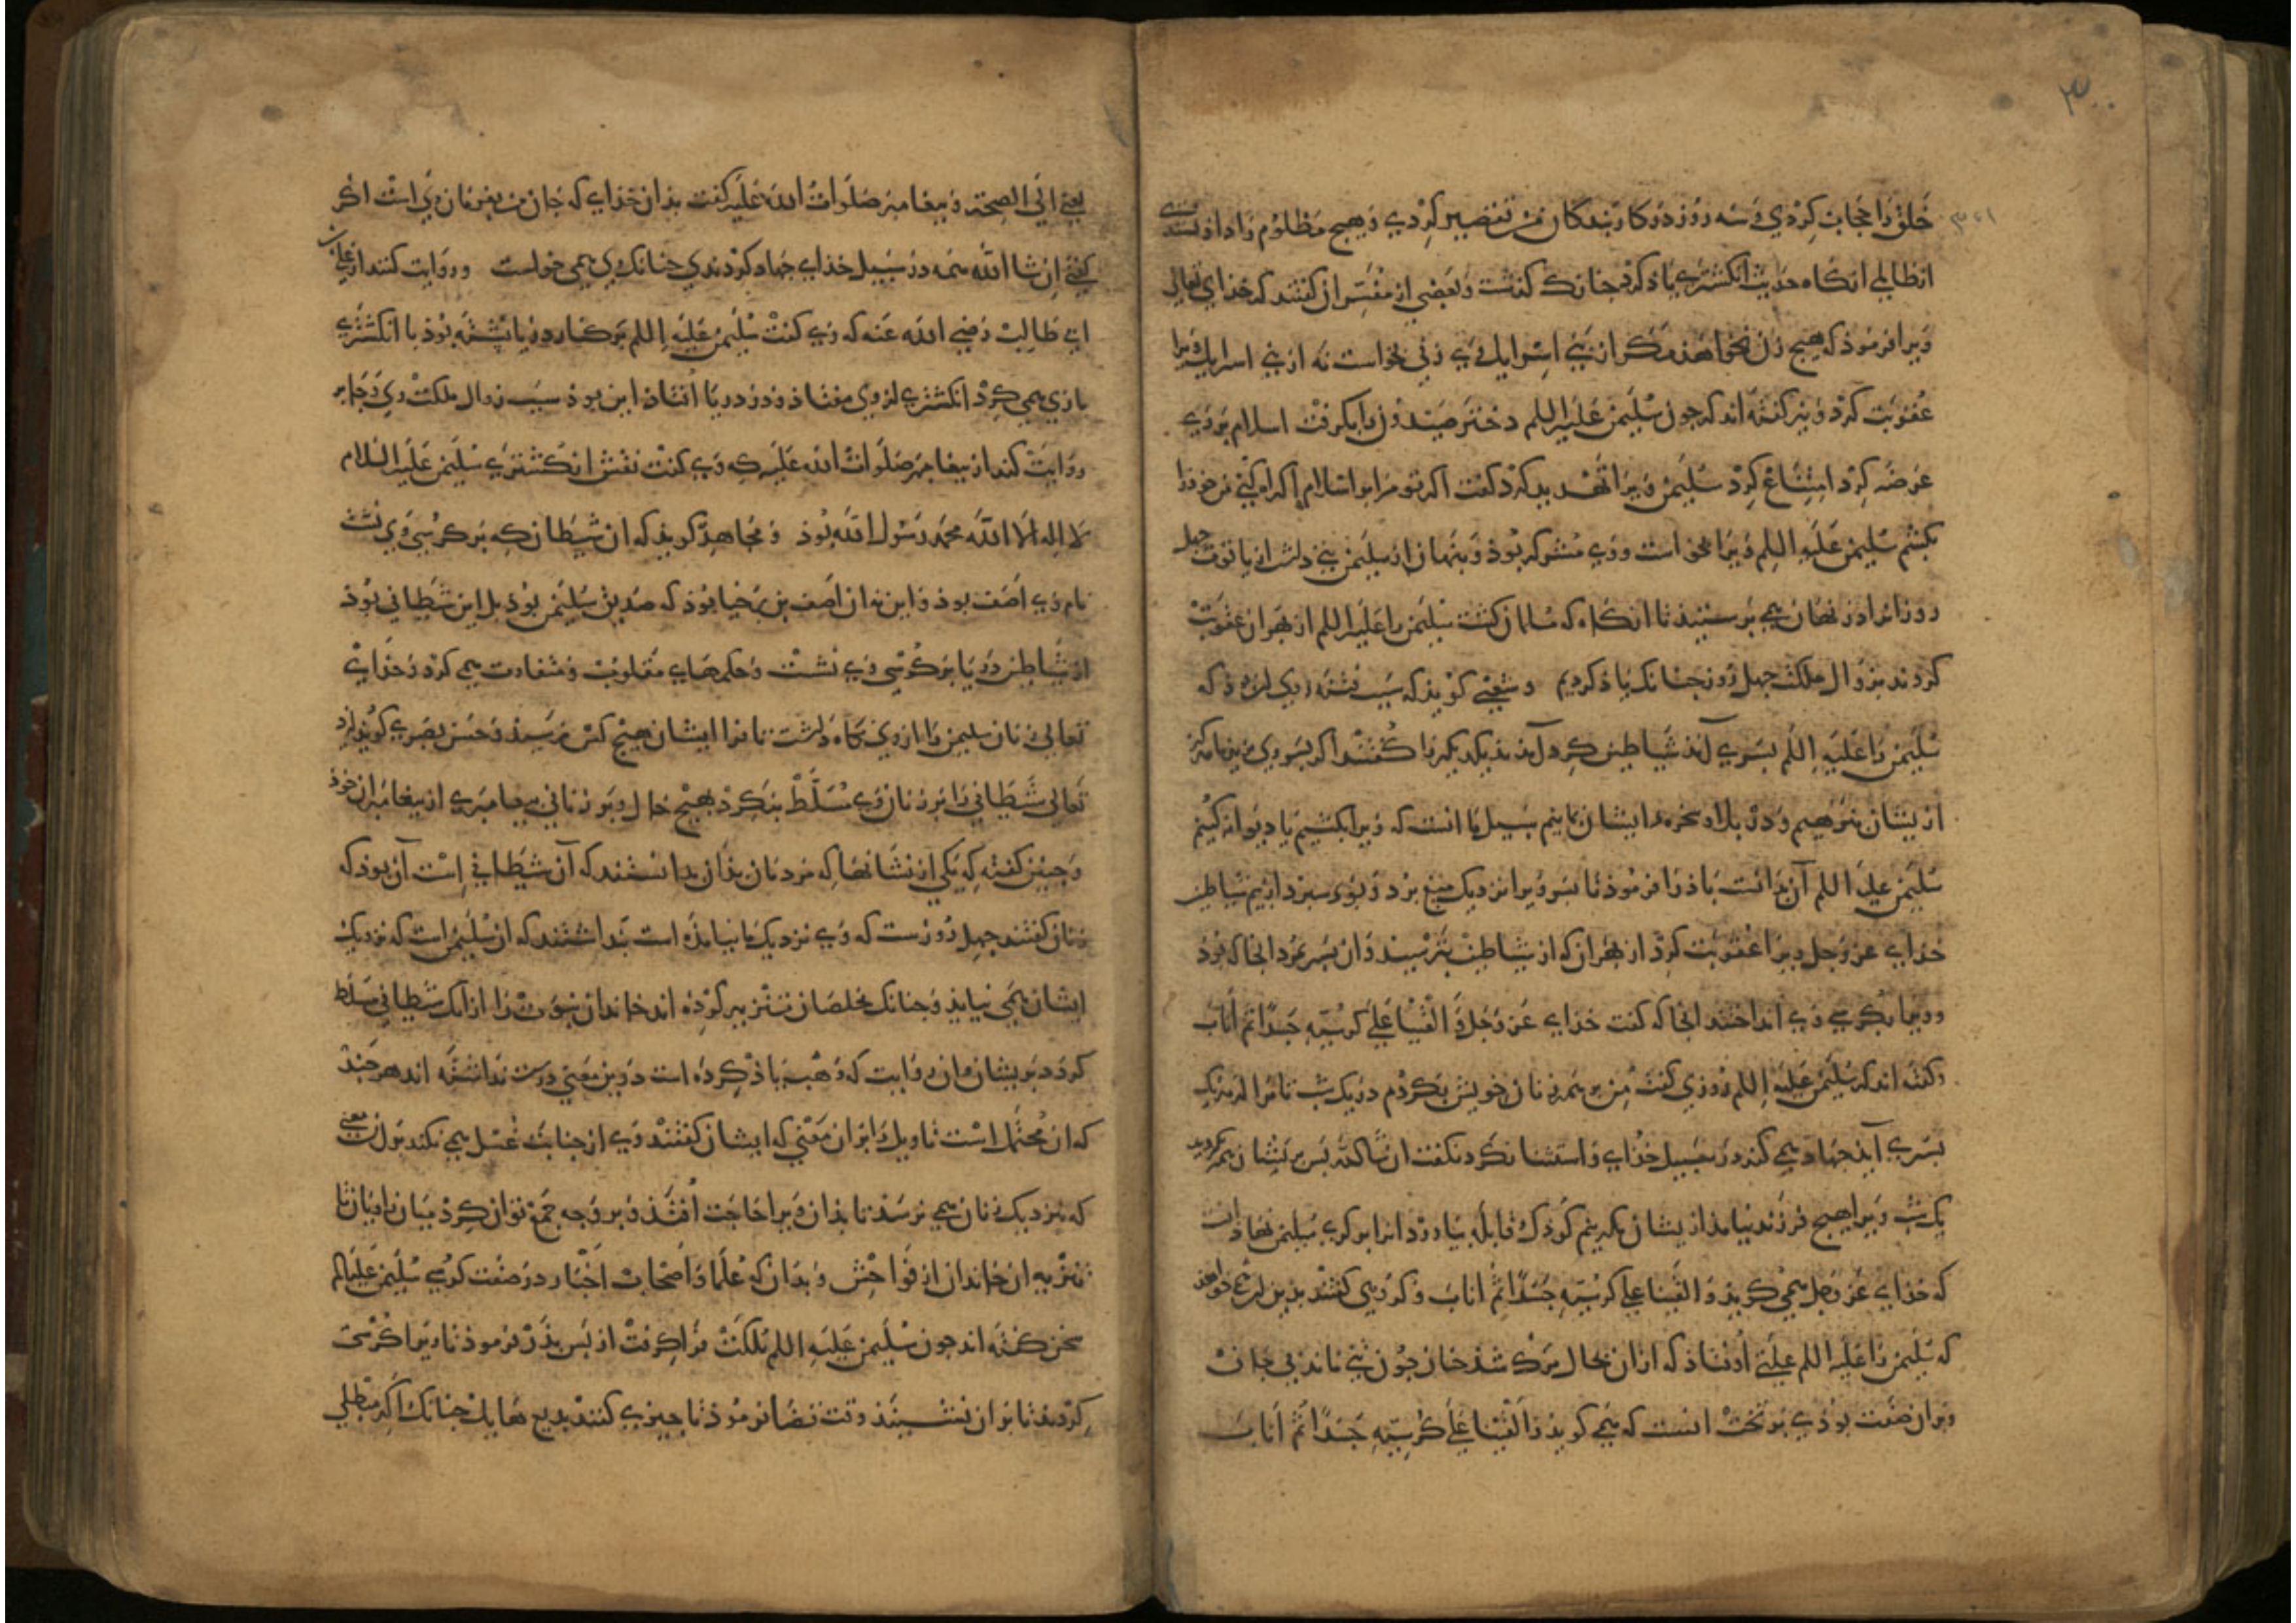 خلق را حجاب کردی و سه روز در کار بندگان من تقصیر کردی و هیچ مظلوم را داد
از ظالم آنگاه حدیث انگشتری یاد کرد چنانک گذشت و بعضی از مفسران گفتند که خذای تعالی
ویرا فرموذ که هیچ زن نخواهذ مگر از بنی اسرایل وی زنی بخواست نه از بنی اسرایل ویرا
عقوبت کرد و نیز گفته‌اند که چون سلیمن علیه السلم دختر صیدون را بگرفت اسلام بر وی
عرضه کرد امتناع کرد سلیمن ویرا تهدید کرد گفت اگر تو مرا بر اسلام اکراه کنی من خوذ را
بکشم سلیمن علیه السلم ویرا بخواست و وی مشرکه بوذ و پنهان از سلیمن بتی داشت از یاقوت چهل
روز آنرا در نهان همی پرستید تا آنگاه که مسلمان گشت سلیمن را علیه السلم از بهر آن عقوبت
کردند بزوال ملکت چهل روز چنانک یاذ کردیم و شعبی گویذ که سبب فتنه وی آن بوذ که
سلیمن را علیه السلم پسری آمذ شیاطین گرد آمدند یکدیگر را گفتند اگر پسر وی بزید ما هرگز
از ایشان نرهیم و در بلا و سخره ایشان بمانیم سبیل ما آنست که ویرا بکشیم یا دیوانه کنیم
سلیمن علیه السلم آن بدانست باذ را فرموذ تا پسر ویرا نزدیک میغ برد و بوی سپرد از بیم شیاطین
خذای عز و جل ویرا عقوبت کرد از بهر آن که از شیاطین بترسید و آن پسر بمرد آنجا که بوذ
و ویرا بکرسی وی انداختند آنجا که گفت خذای عز و جل و القینا علی کرسیه جسدا ثم اناب
و گفته اند که سلیمن علیه السلم روزی گفت من بر همه زنان خویش بگردم در یک شب تا مرا از هر یک
پسری آیذ جهاد همی کند در سبیل خذای و استثنا نکرد نگفت ان شاالله پس بر ایشان همه
یک شب ویرا هیچ فرزند نیامد از ایشان مگر نیم کوذک قابله بیاورد آنرا بر کرسی سلیمن نهاد آنست
که خذای عز و جل همی گویذ و القینا علی کرسیه جسدا ثم اناب و گروهی گفتند بدین
که سلیمن را علیه السلم علتی اوفتاذ که از آن بحال مرگ شذ چنان چون تنی ماند بی جان
و بر آن صفت بوذی بر تخت آنست که همی گویذ و القینا علی کرسیه جسدا ثم اناب
یعنی الی الصحة و پیغامبر صلوات الله علیه گفت بذان خذای که جان من بفرمان وی است اگر
گفتی ان شا الله همه در سبیل خذای جهاد کردندی چنانک وی همی خواست و روایت کنند از علی بن
ابی طالب رضی الله عنه که وی گفت سلیمن علیه السلم بر کنار دریا نشسته بوذ با انگشتری
بازی همی کرد انگشتری از وی بیفتاذ و در دریا افتاذ این بوذ سبب زوال ملکت وی و جابر
روایت کند از پیغامبر صلوات الله علیه که وی گفت نقش انگشتری سلیمن علیه السلام
لا اله الا الله محمد رسول الله بوذ و مجاهد گویذ که آن شیطان که بر کرسی وی نشست
نام وی آصف بوذ و این نه آن آصف بن برخیا بوذ که صدیق سلیمن بوذ بل این شیطانی بوذ
از شیاطین دریا بر کرسی وی نشست و حکمهای مقلوب و متفاوت همی کرد و خذای
تعالی زنان سلیمن را از وی نگاه داشت تا فرا ایشان هیچ کس نرسید و حسن بصری گویذ ایزد
تعالی شیطانی را بر زنان وی مسلط نکرد بهیچ حال و بر زنان پیغامبری از پیغامبران خوذ
و چنین گفته که یکی از نشانها که مردمان بذان بدانستند که آن شیطانی است آن بوذ که
زنان گفتند چهل روزست که وی نزدیک ما نیامذه است بدانستند که آن سلیمن است که نزدیک
ایشان همی نیایذ و چنانک مخلصان تنزیه کرده اند خاندان نبوت را از آنک شیطانی مسلط
گردد بر ایشان و آن روایت که وهب یاذ کرده است درین معنی درست نداشته اند هر چند
که آن محتمل است تاویل را بر آن معنی که ایشان گفتند وی از جنابت غسل همی نکند بر آن معنی
که نزدیک زنان همی نرسذ تا بذان ویرا حاجت افتذ و برین وجه جمع توان کرد میان روایات تا
تنزیه آن خاندان از فواحش و بدان که علما و اصحاب اخبار در صفت کرسی سلیمن علیه السلم
سخن گفته اند چون سلیمن علیه السلم ملکت فرا گرفت از پس پذر فرموذ تا ویرا کرسی
کردند تا بر آن نشیند وقت قضا فرموذ تا چیزی کنند بدیع هایل چنانک اگر مبطلی